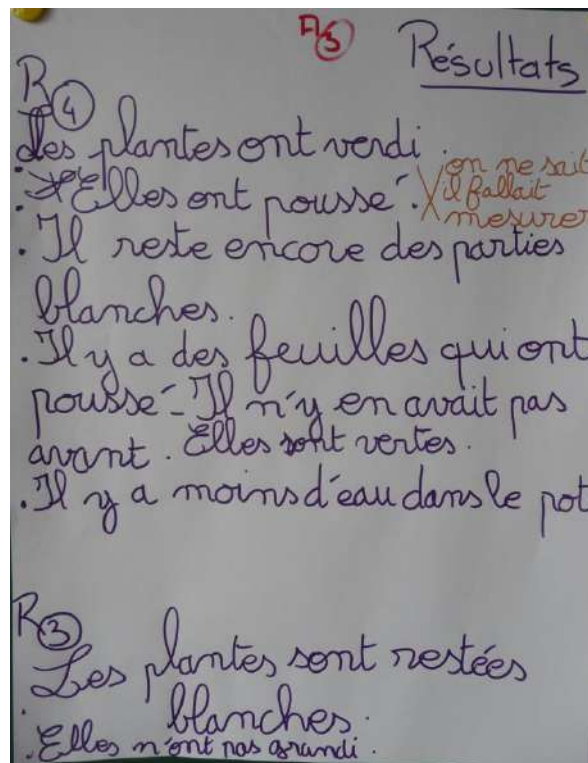 A5
Résultats
R4
des plantes ont verdi
. Elles ont poussé. X on ne sait
il fallait
mesurer
. Il reste encore des parties
blanches.
. Il y a des feuilles qui ont
poussé - Il n'y en avait pas
avant. Elles sont vertes.
. Il y a moins d'eau dans le pot
R3
Les plantes sont restées
blanches.
. Elles n'ont pas grandi.